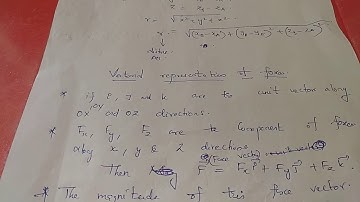 z = z₂ - z₁
r = √x²+y²+z²
Vectorial representation of force
* if i, j and k are to unit vector along
ox, oy and oz directions.
* Fx, Fy, Fz are to component of force
along x, y & z directions
(force vector)
Then F = Fx i + Fy j + Fz k
* The magnitude of this force vector.